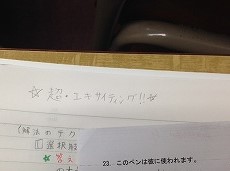 ☆超・エキサイティング!!☆
(解法のテク
①選択肢
☆答え
23. このペンは彼に使われます。